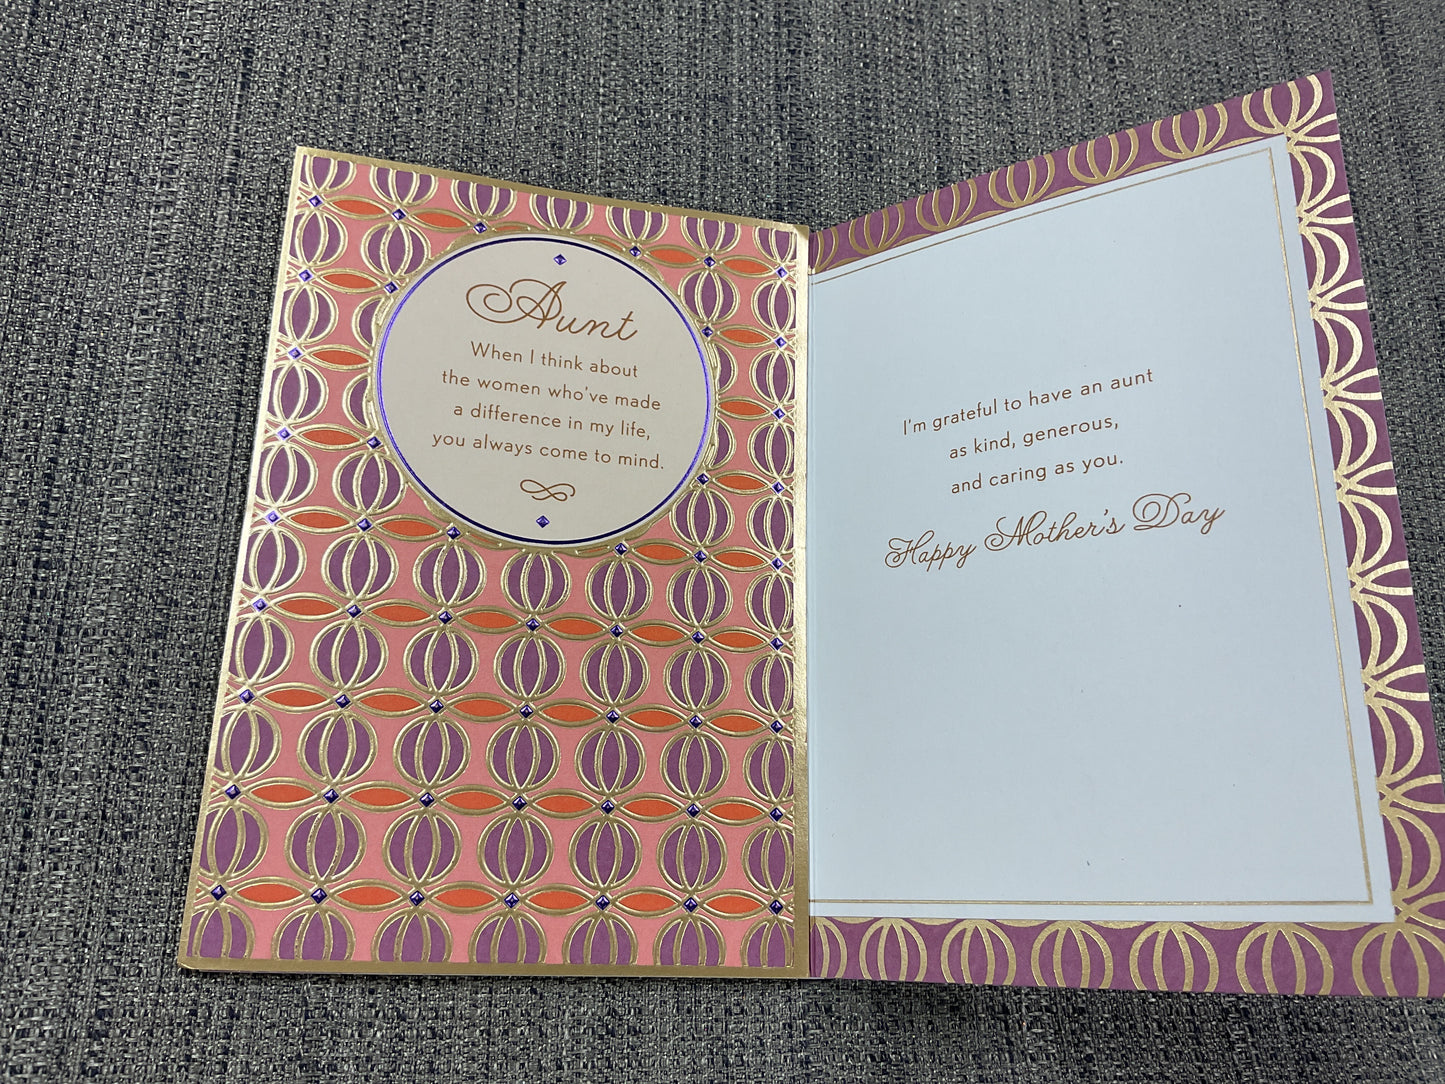 Aunt
When I think about
the women who've made
a difference in my life,
you always come to mind.
I'm grateful to have an aunt
as kind, generous,
and caring as you.
Happy Mother's Day